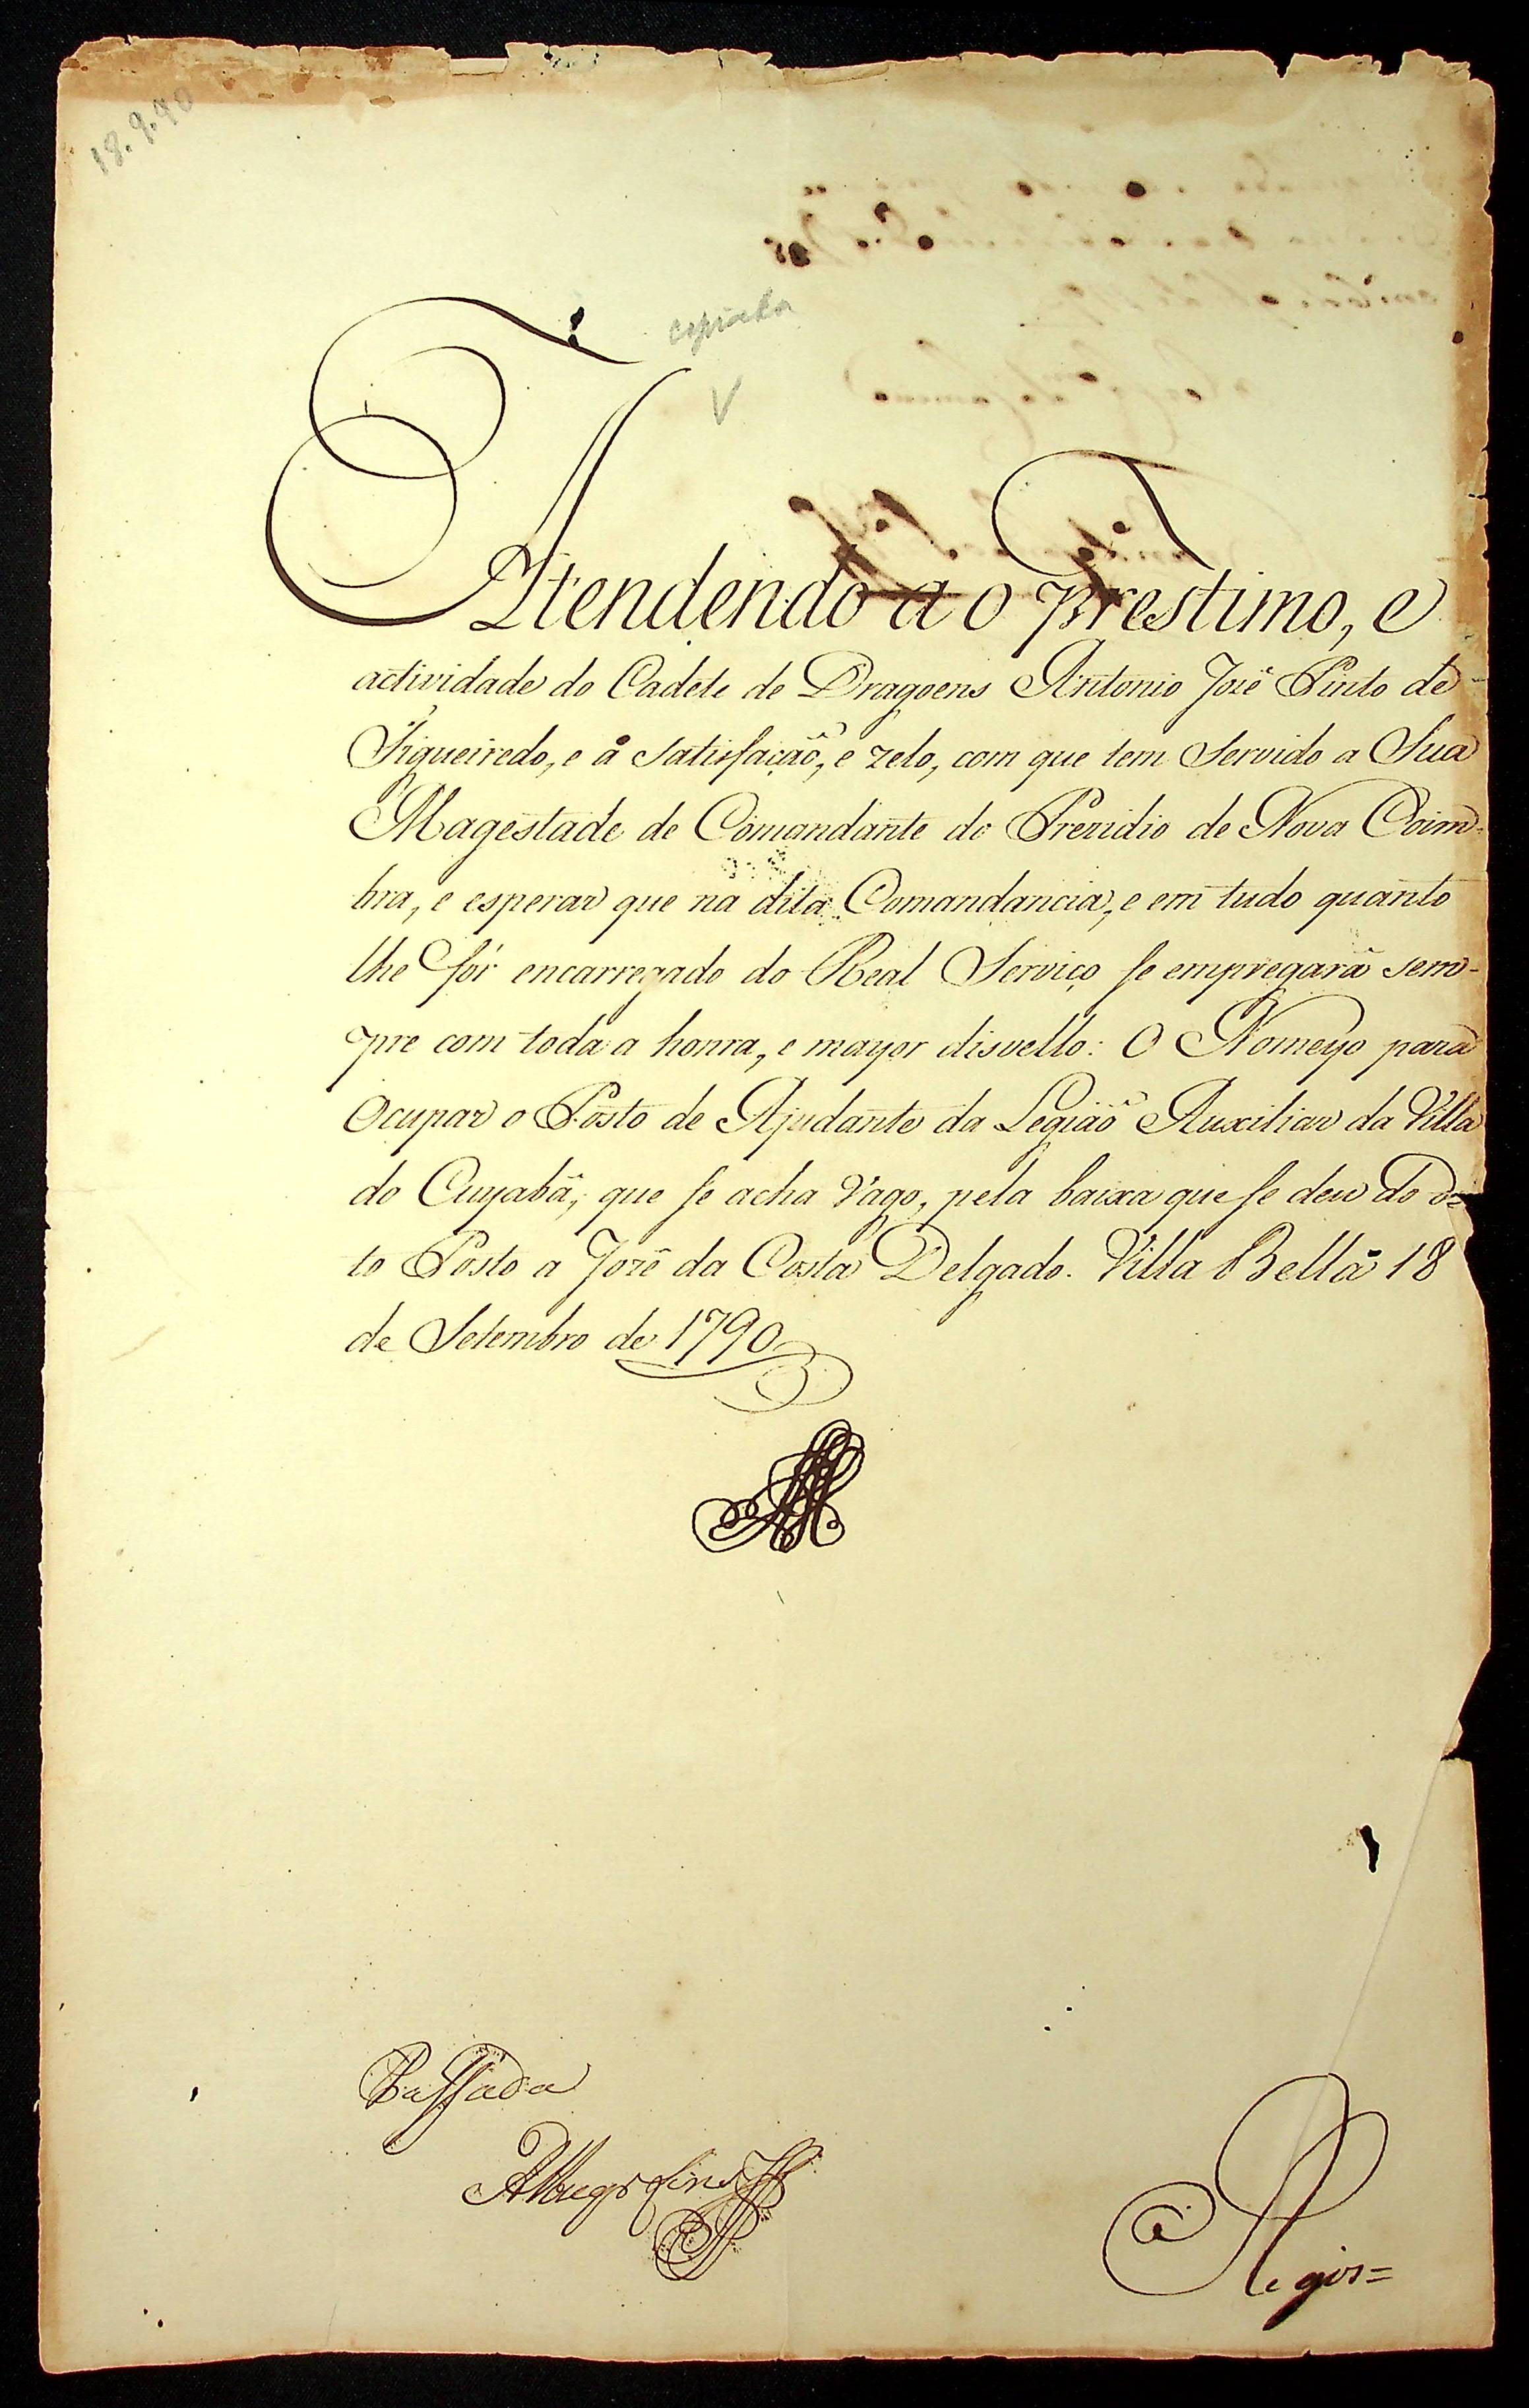 18.9.90
copiada
V
Attendendo ao Prestimo, e
actividade do Cadete de Dragoens Antonio Jozê Pinto de
Figueiredo, e â Satisfação, e zelo, com que tem Servido a Sua
Magestade de Comandante do Prezidio de Nova Coim-
bra, e esperar que na dita Comandancia, e em tudo quanto
lhe fôr encarregado do Real Serviço se empregarâ sem-
pre com toda a honra, e mayor disvello: O Nomeyo para
Ocupar o Posto de Ajudante da Legiaô Auxiliar da Villa
do Cuyabâ, que se acha Vago, pela baixa que se deu do di-
to Posto a Jozê da Costa Delgado. Villa Bella 18
de Setembro de 1790
Passada
a Regis=